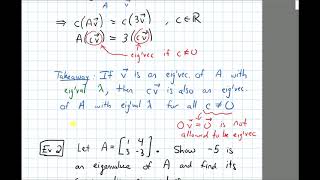 ⇒ c(Av⃗) = c(3v⃗) , c∈ℝ
A(cv⃗) = 3(cv⃗)
eig'vec if c≠0
Takeaway: If v⃗ is an eig'vec. of A with
eig'val λ, then cv⃗ is also an eig'vec.
of A with eig'val λ for all c≠0
0v⃗=0⃗ is not
allowed to be eig'vec.
Ex 2 Let A = [1 4; 3 -3]. Show -5 is
an eigenvalue of A and find its